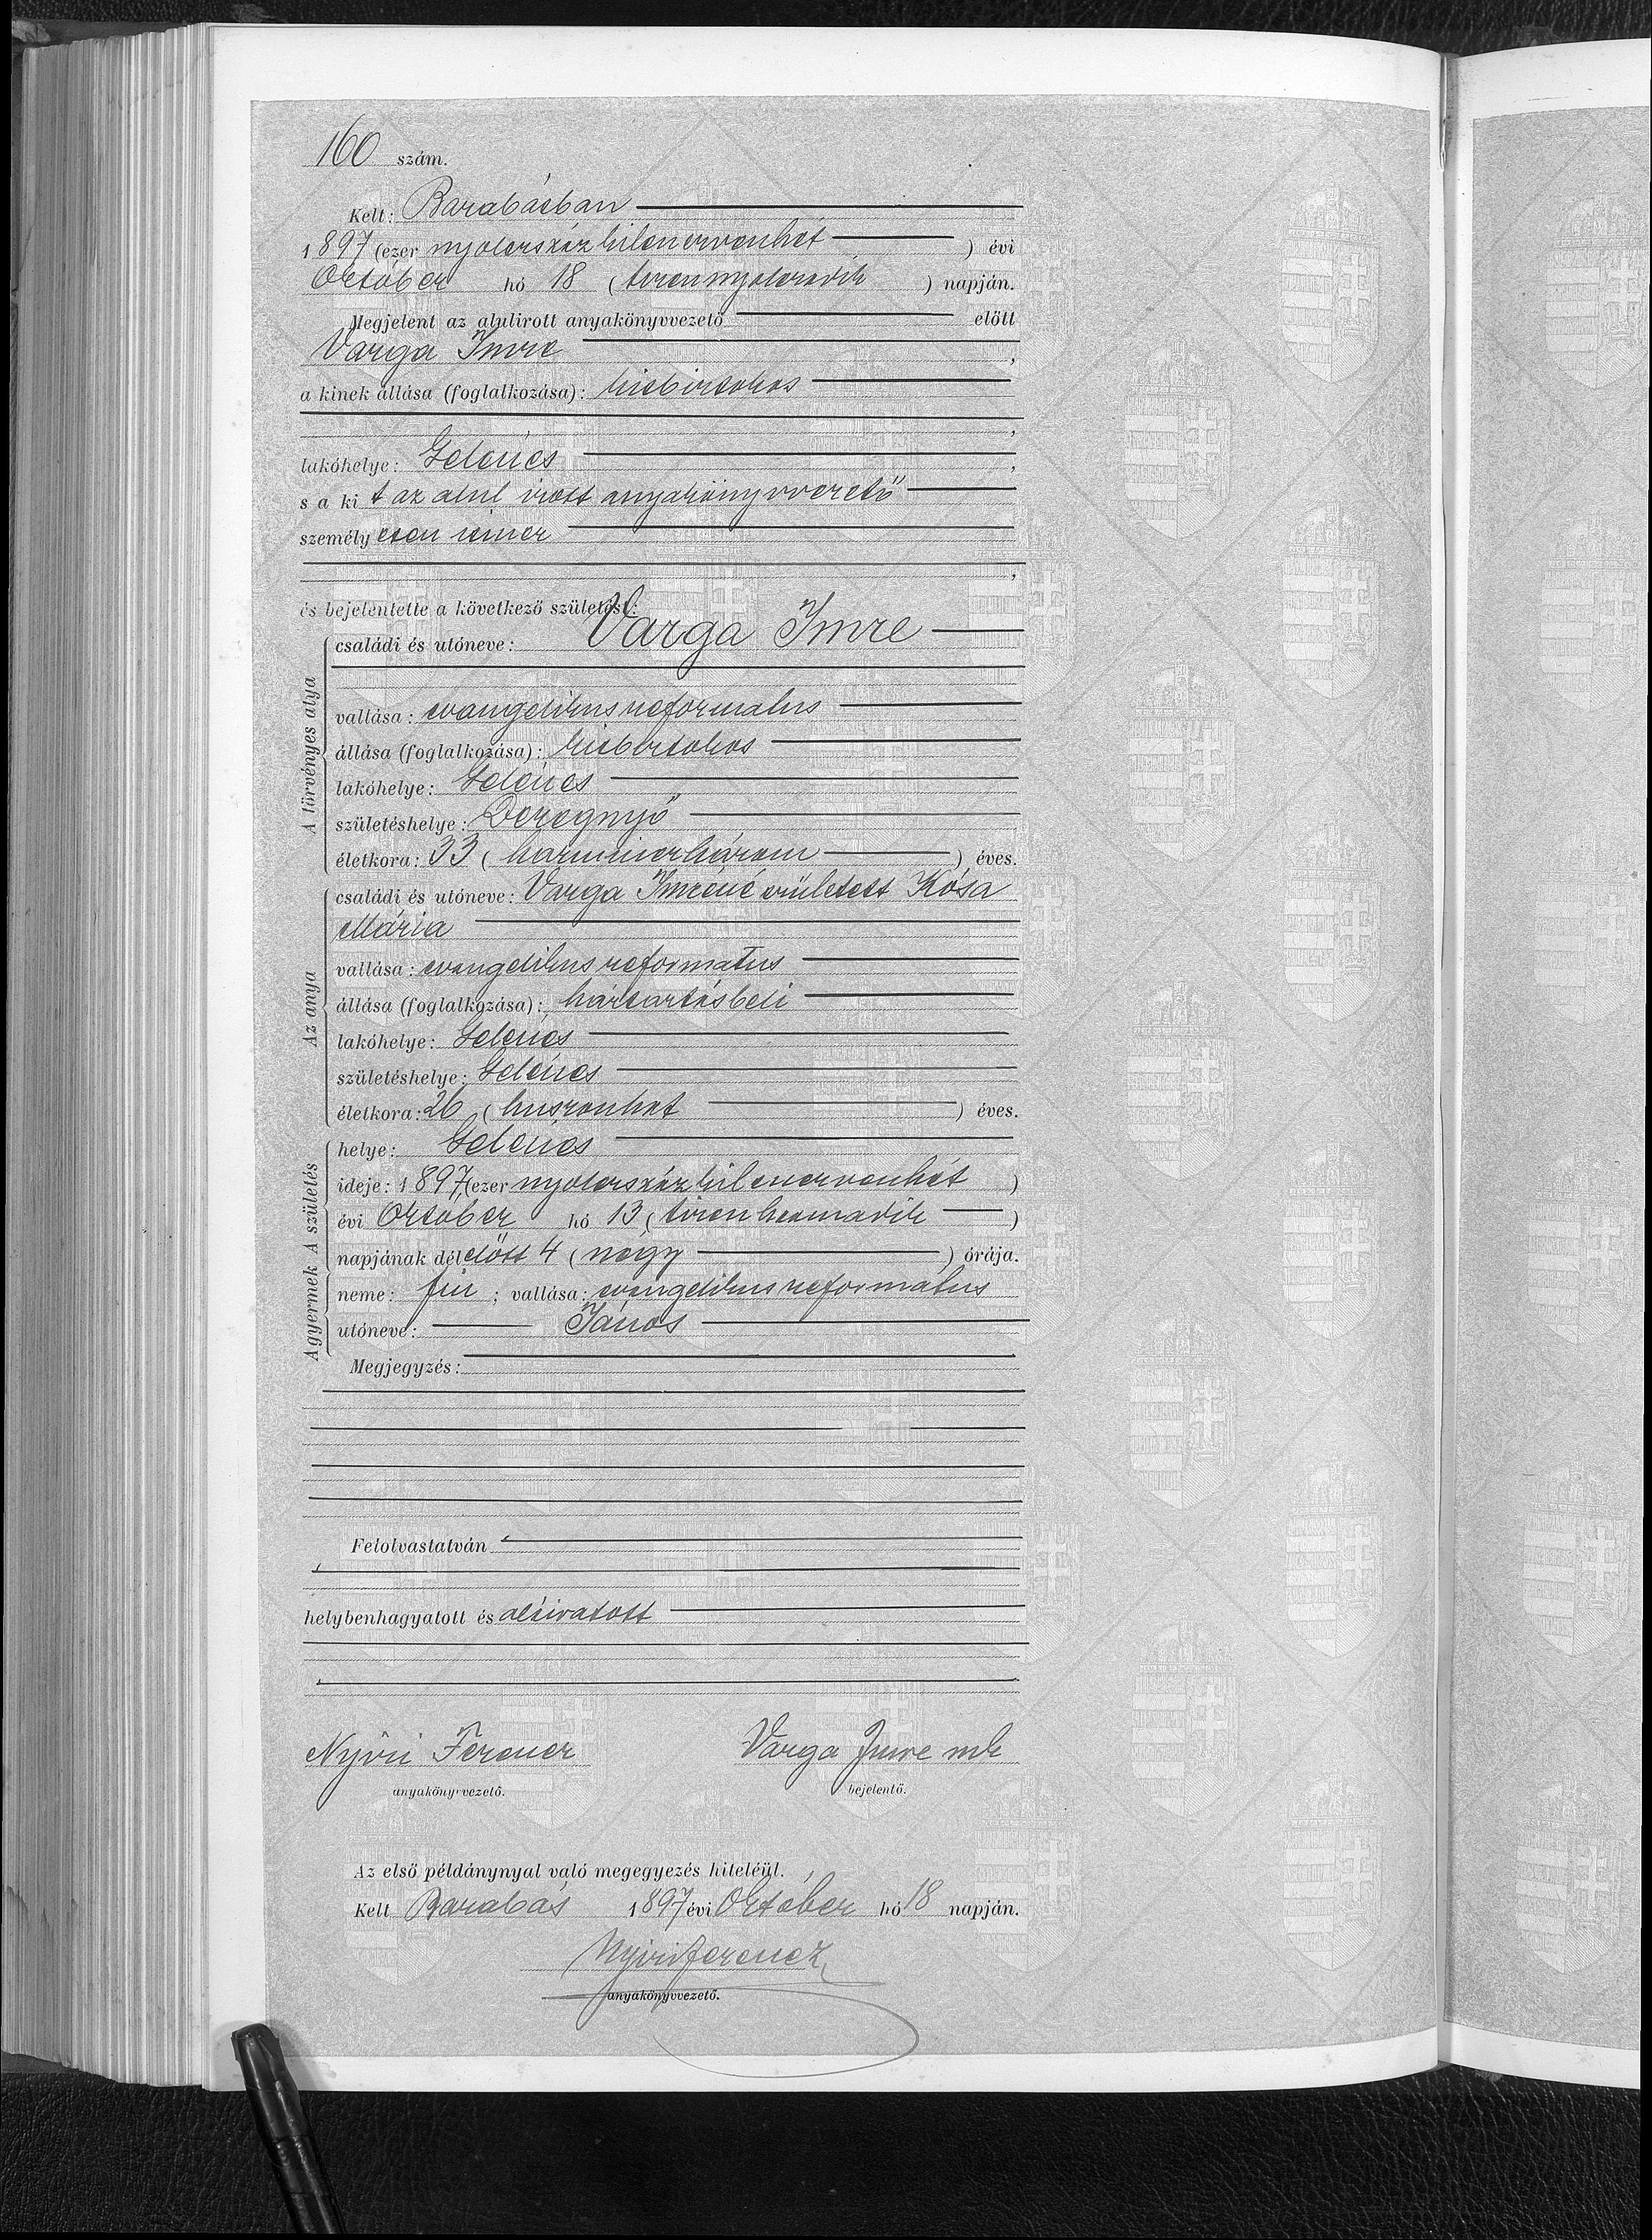 160 szám.
Kelt: Barabásban
1897 (ezer nyolczszáz kilenczvenhét) évi
Október hó 18 (tizennyolczadik) napján.
Megjelent az alulirott anyakönyvvezető előtt
Varga Imre,
a kinek állása (foglalkozása): kisbirtokos
,
lakóhelye: Gelénes,
s a kit az alul irott anyakönyvvezető
személyesen ismer
,
és bejelentette a következő születést:
A törvényes atya
családi és utóneve: Varga Imre
vallása: evangelikus reformatus
állása (foglalkozása): kisbirtokos
lakóhelye: Gelénes
születéshelye: Deregnyő
életkora: 33 (harminczhárom) éves.
Az anya
családi és utóneve: Varga Imréné született Kósa
Mária
vallása: evangelikus reformatus
állása (foglalkozása): háztartásbeli
lakóhelye: Gelénes
születéshelye: Gelénes
életkora: 26 (huszonhat) éves.
A születés
helye: Gelénes
ideje: 1897, (ezer nyolczszáz kilenczvenhét)
évi Október hó 13 (tizenharmadik)
napjának délelőtt 4 (négy) órája.
A gyermek
neme: fiu; vallása: evangelikus református
utóneve: János
Megjegyzés:
Felolvastatván
helybenhagyatott és aláiratott
Nyiri Ferencz Varga Imre mk
anyakönyvvezető. bejelentő.
Az első példánynyal való megegyezés hiteléül.
Kelt Barabás 1897 évi Október hó 18 napján.
Nyiri Ferencz
anyakönyvvezető.